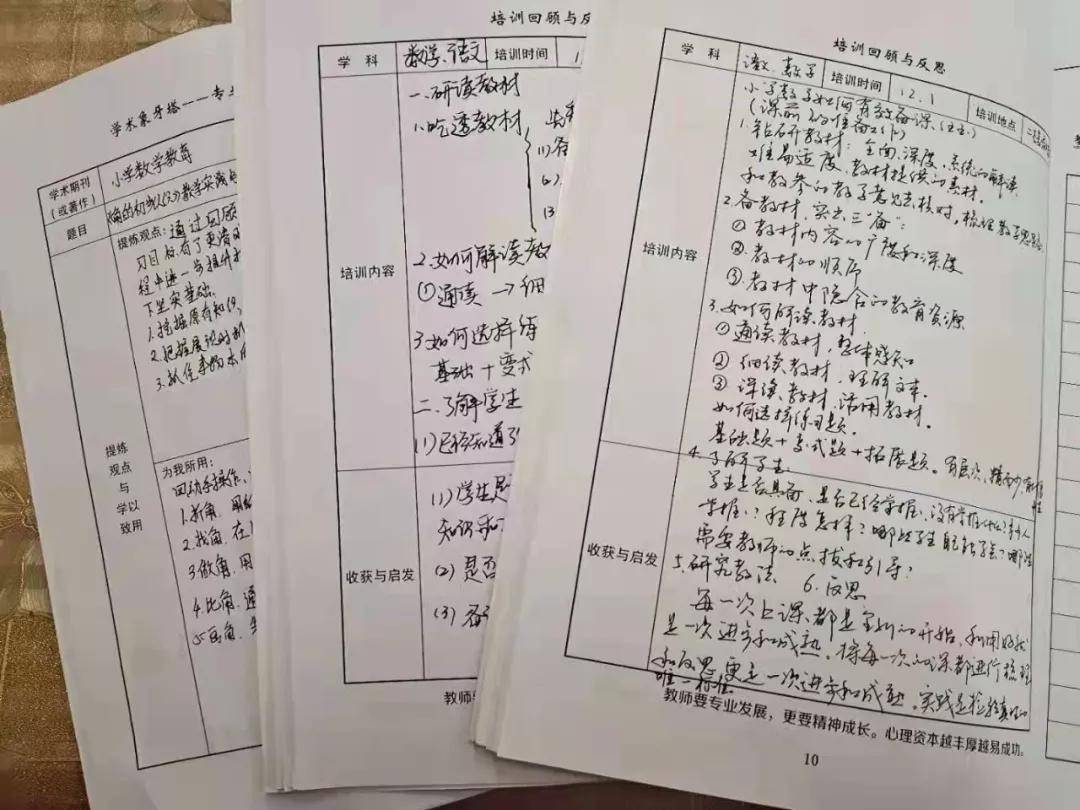 学术象牙塔——专业
学术期刊
（或著作）
小学数学教育
题目
《角的初步认识》教学实践
提炼观点：通过回顾
习目标，有了更清
程中进一步提升
下坚实基础。
1.挖掘原有知识，
2.把握展说时机
3.抓住事物本
提炼
观点
与
学以
致用
为我所用：
回动手操作，
1.折角，用
2.找角，在
3.做角，用
4.比角，通
5.画角，
培训回顾与反
学 科
数学、语文
培训时间
培训内容
一.研读教材
1.吃透教材
(1)
(2)
(3)
2.如何解读教
①通读→细
3.如何选择练
基础+变式
二.了解学生
(1)已经知道了
收获与启发
(1)学生是
知识和
(2)是否
(3)各
教师要
培训回顾与反思
学 科
语文、数学
培训时间
12.1
培训地点
小学数学如何有效备课
(课前的准备工作)
1.钻研教材：全面、深度、系统的解读
难易适度，教材提供的素材。
和教参的教学意见核对，梳理教学思路
培训内容
2.备教材，突出“三备”：
①教材内容的广度和深度
②教材的顺序
③教材中隐含的教育资源
3.如何解读教材
①通读教材，整体感知
②细读教材，理解文本.
③深读教材，活用教材.
如何选择练习题.
基础题+变式题+拓展题。有层次，精而少，
4.了解学生
学生是否具备、是否已经掌握、没有掌握什么？多少人
掌握？程度怎样？哪些学生自己能学会？哪些
需要教师的点拨和引导？
收获与启发
5.研究教法 6.反思
每一次上课都是全新的开始，利用好就
是一次进步和成熟。将每一次的课都进行梳理
和反思更是一次进步和成熟。实践是检验真理的
唯一标准
教师要专业发展，更要精神成长。心理资本越丰厚越易成功。
10